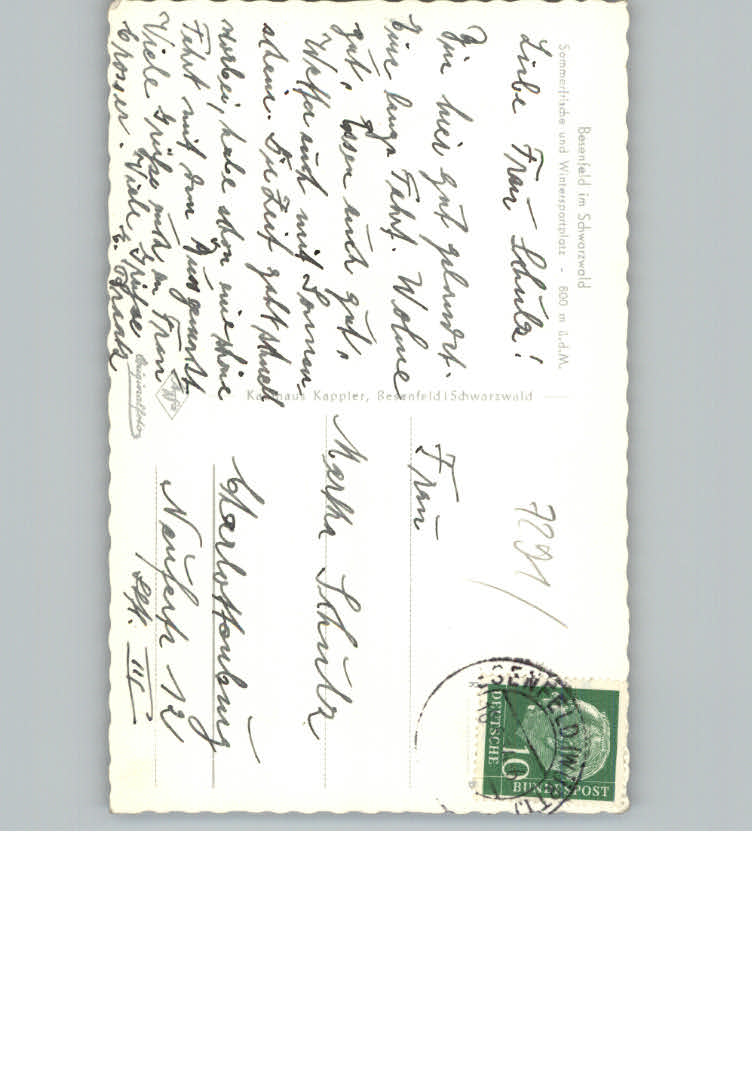 Besenfeld im Schwarzwald
Sommerfrische und Wintersportplatz - 800 m ü.d.M.
Liebe Frau Schulz!
Bin hier gut gelandet.
Eine lange Fahrt. Wohne
gut, Essen auch gut,
Wetter auch mit Sonnen-
schein. Die Zeit geht schnell
vorbei, habe schon eine schöne
Fahrt mit dem gemacht
Viele Grüße auch an Frau
Viele Grüße
Originalfoto
Kaufhaus Kappler, Besenfeld i Schwarzwald
7291
Frau
Martha Schulz
Charlottenburg
Neufertstr 12
III
BESENFELD
DEUTSCHE
10
BUNDESPOST